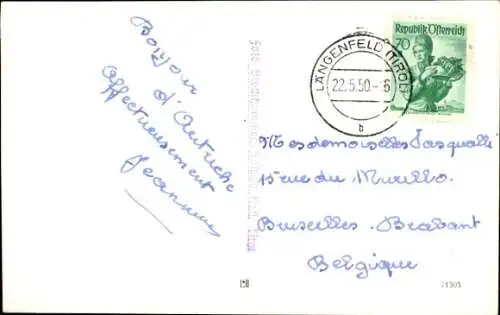 Bonjour
d'Autriche
affectueusement
Jeannine
Republik Österreich
70
LÄNGENFELD (TIROL)
22.5.50.-6
b
Mesdemoiselles Pasqualle
15 rue du Murillo.
Bruxelles. Brabant
Belgique